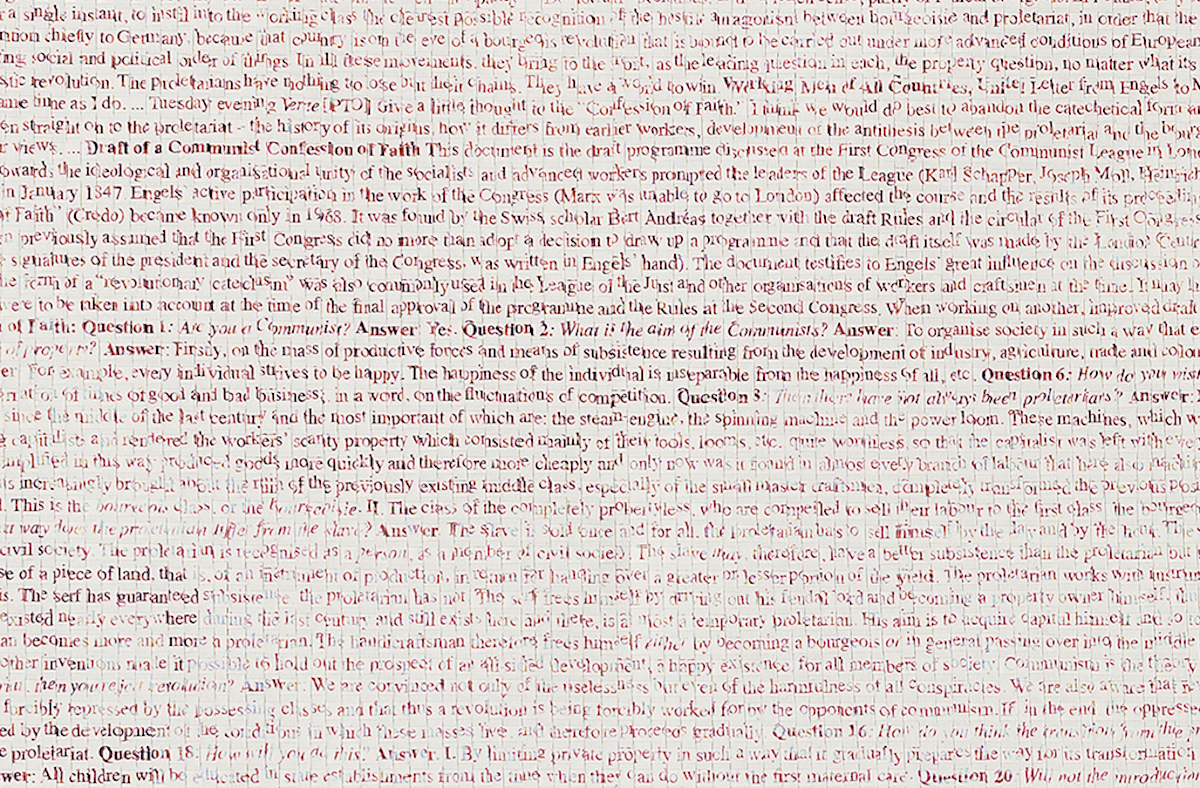 r a single instant, to instil into the working class the clearest possible recognition of the hostile antagonism between bourgeoisie and proletariat, in order that the
ntion chiefly to Germany, because that country is on the eve of a bourgeois revolution that is bound to be carried out under more advanced conditions of European
ng social and political order of things. In all these movements, they bring to the front, as the leading question in each, the property question, no matter what its
stic revolution. The proletarians have nothing to lose but their chains. They have a world to win. Working Men of All Countries, Unite! Letter from Engels to M
ame time as I do. ... Tuesday evening Verte [PTO] Give a little thought to the "Confession of Faith." I think we would do best to abandon the catechetical form and
en straight on to the proletariat - the history of its origins, how it differs from earlier workers, development of the antithesis between the proletariat and the bourg
r views.... Draft of a Communist Confession of Faith This document is the draft programme discussed at the First Congress of the Communist League in Lon
owards the ideological and organisational unity of the socialists and advanced workers prompted the leaders of the League (Karl Schapper, Joseph Moll, Heinrich
in January 1847. Engels' active participation in the work of the Congress (Marx was unable to go to London) affected the course and the results of its proceedi
of Faith" (Credo) became known only in 1968. It was found by the Swiss scholar Bert Andréas together with the draft Rules and the circular of the First Congress
n previously assumed that the First Congress did no more than adopt a decision to draw up a programme and that the draft itself was made by the London Centr
e signatures of the president and the secretary of the Congress, was written in Engels' hand). The document testifies to Engels' great influence on the discussion o
he form of a "revolutionary catechism" was also commonly used in the League of the Just and other organisations of workers and craftsmen at the time. It may b
were to be taken into account at the time of the final approval of the programme and the Rules at the Second Congress. When working on another, improved draft
n of Faith: Question 1: Are you a Communist? Answer: Yes. Question 2: What is the aim of the Communists? Answer: To organise society in such a way that e
of property? Answer: Firstly, on the mass of productive forces and means of subsistence resulting from the development of industry, agriculture, trade and colon
er: For example, every individual strives to be happy. The happiness of the individual is inseparable from the happiness of all, etc. Question 6: How do you wish
ernation of times of good and bad business; in a word, on the fluctuations of competition. Question 8: Then there have not always been proletarians? Answer:
since the middle of the last century and the most important of which are: the steam-engine, the spinning machine and the power loom. These machines, which w
g capitalists and rendered the workers' scanty property which consisted mainly of their tools, looms, etc. quite worthless, so that the capitalist was left with ever
simplified in this way produced goods more quickly and therefore more cheaply and only now was it found in almost every branch of labour that here also machin
is increasingly brought about the ruin of the previously existing middle class, especially of the small master craftsmen, completely transformed the previous posi
l. This is the bourgeois class, or the bourgeoisie. II. The class of the completely propertyless, who are compelled to sell their labour to the first class, the bourgeo
at way does the proletarian differ from the slave? Answer: The slave is sold once and for all, the proletarian has to sell himself by the day and by the hour. The
civil society. The proletarian is recognised as a person, as a member of civil society. The slave may, therefore, have a better subsistence than the proletarian but
se of a piece of land, that is, of an instrument of production, in return for handing over a greater or lesser portion of the yield. The proletarian works with instrum
is. The serf has guaranteed subsistence, the proletarian has not. The serf frees himself by driving out his feudal lord and becoming a property owner himself, thu
existed nearly everywhere during the last century and still exists here and there, is at most a temporary proletarian. His aim is to acquire capital himself and so to
an becomes more and more a proletarian. The handicraftsman therefore frees himself either by becoming a bourgeois or in general passing over into the middle
other inventions made it possible to hold out the prospect of an all-sided development, a happy existence, for all members of society. Communism is the theory
riat, then you reject revolution? Answer: We are convinced not only of the uselessness but even of the harmfulness of all conspiracies. We are also aware that re
forcibly repressed by the possessing classes and that thus a revolution is being forcibly worked for by the opponents of communism. If, in the end, the oppresse
ed by the development of the conditions in which these masses live, and therefore proceeds gradually. Question 16: How do you think the transition from the p
e proletariat. Question 18: How will you do this? Answer: I. By limiting private property in such a way that it gradually prepares the way for its transformatio
wer: All children will be educated in state establishments from the time when they can do without the first maternal care. Question 20: Will not the introduction